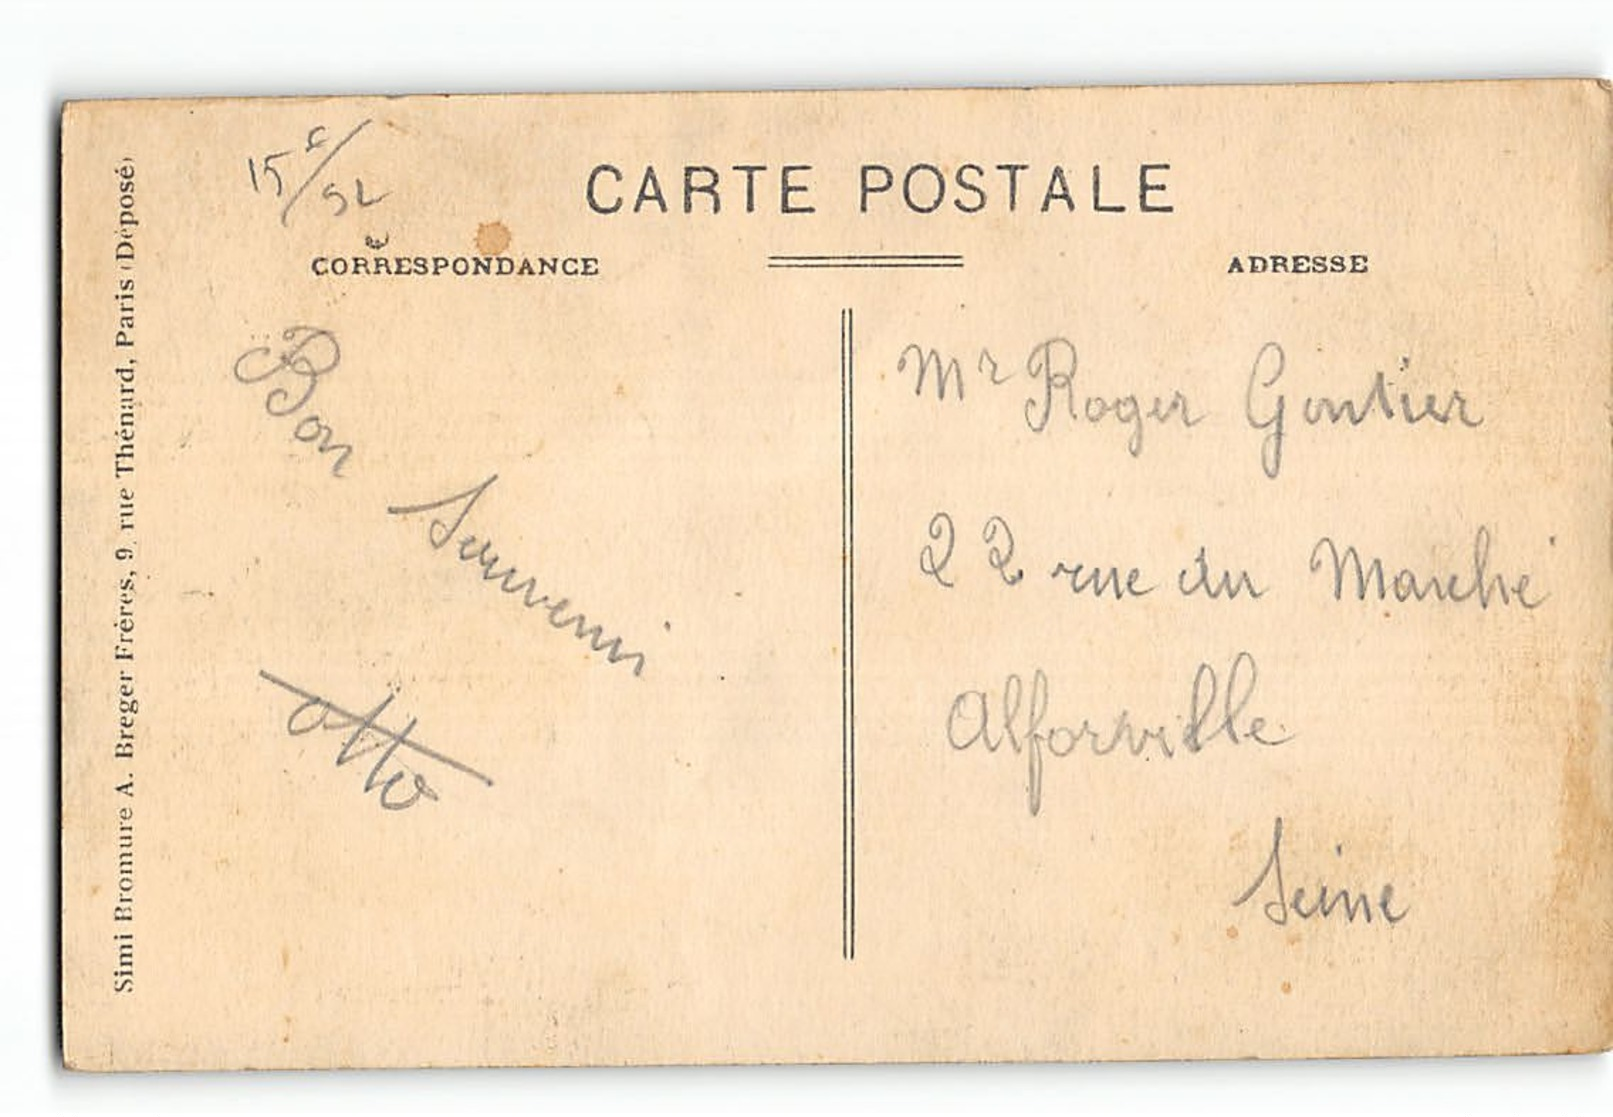 15€/
92
CARTE POSTALE
CORRESPONDANCE
ADRESSE
Bon
Souvenir
Otto
Mr Roger Gontier
22 rue du Marché
Alforville
Seine
Simi Bromure A. Breger Frères, 9, rue Thénard, Paris (Déposé)